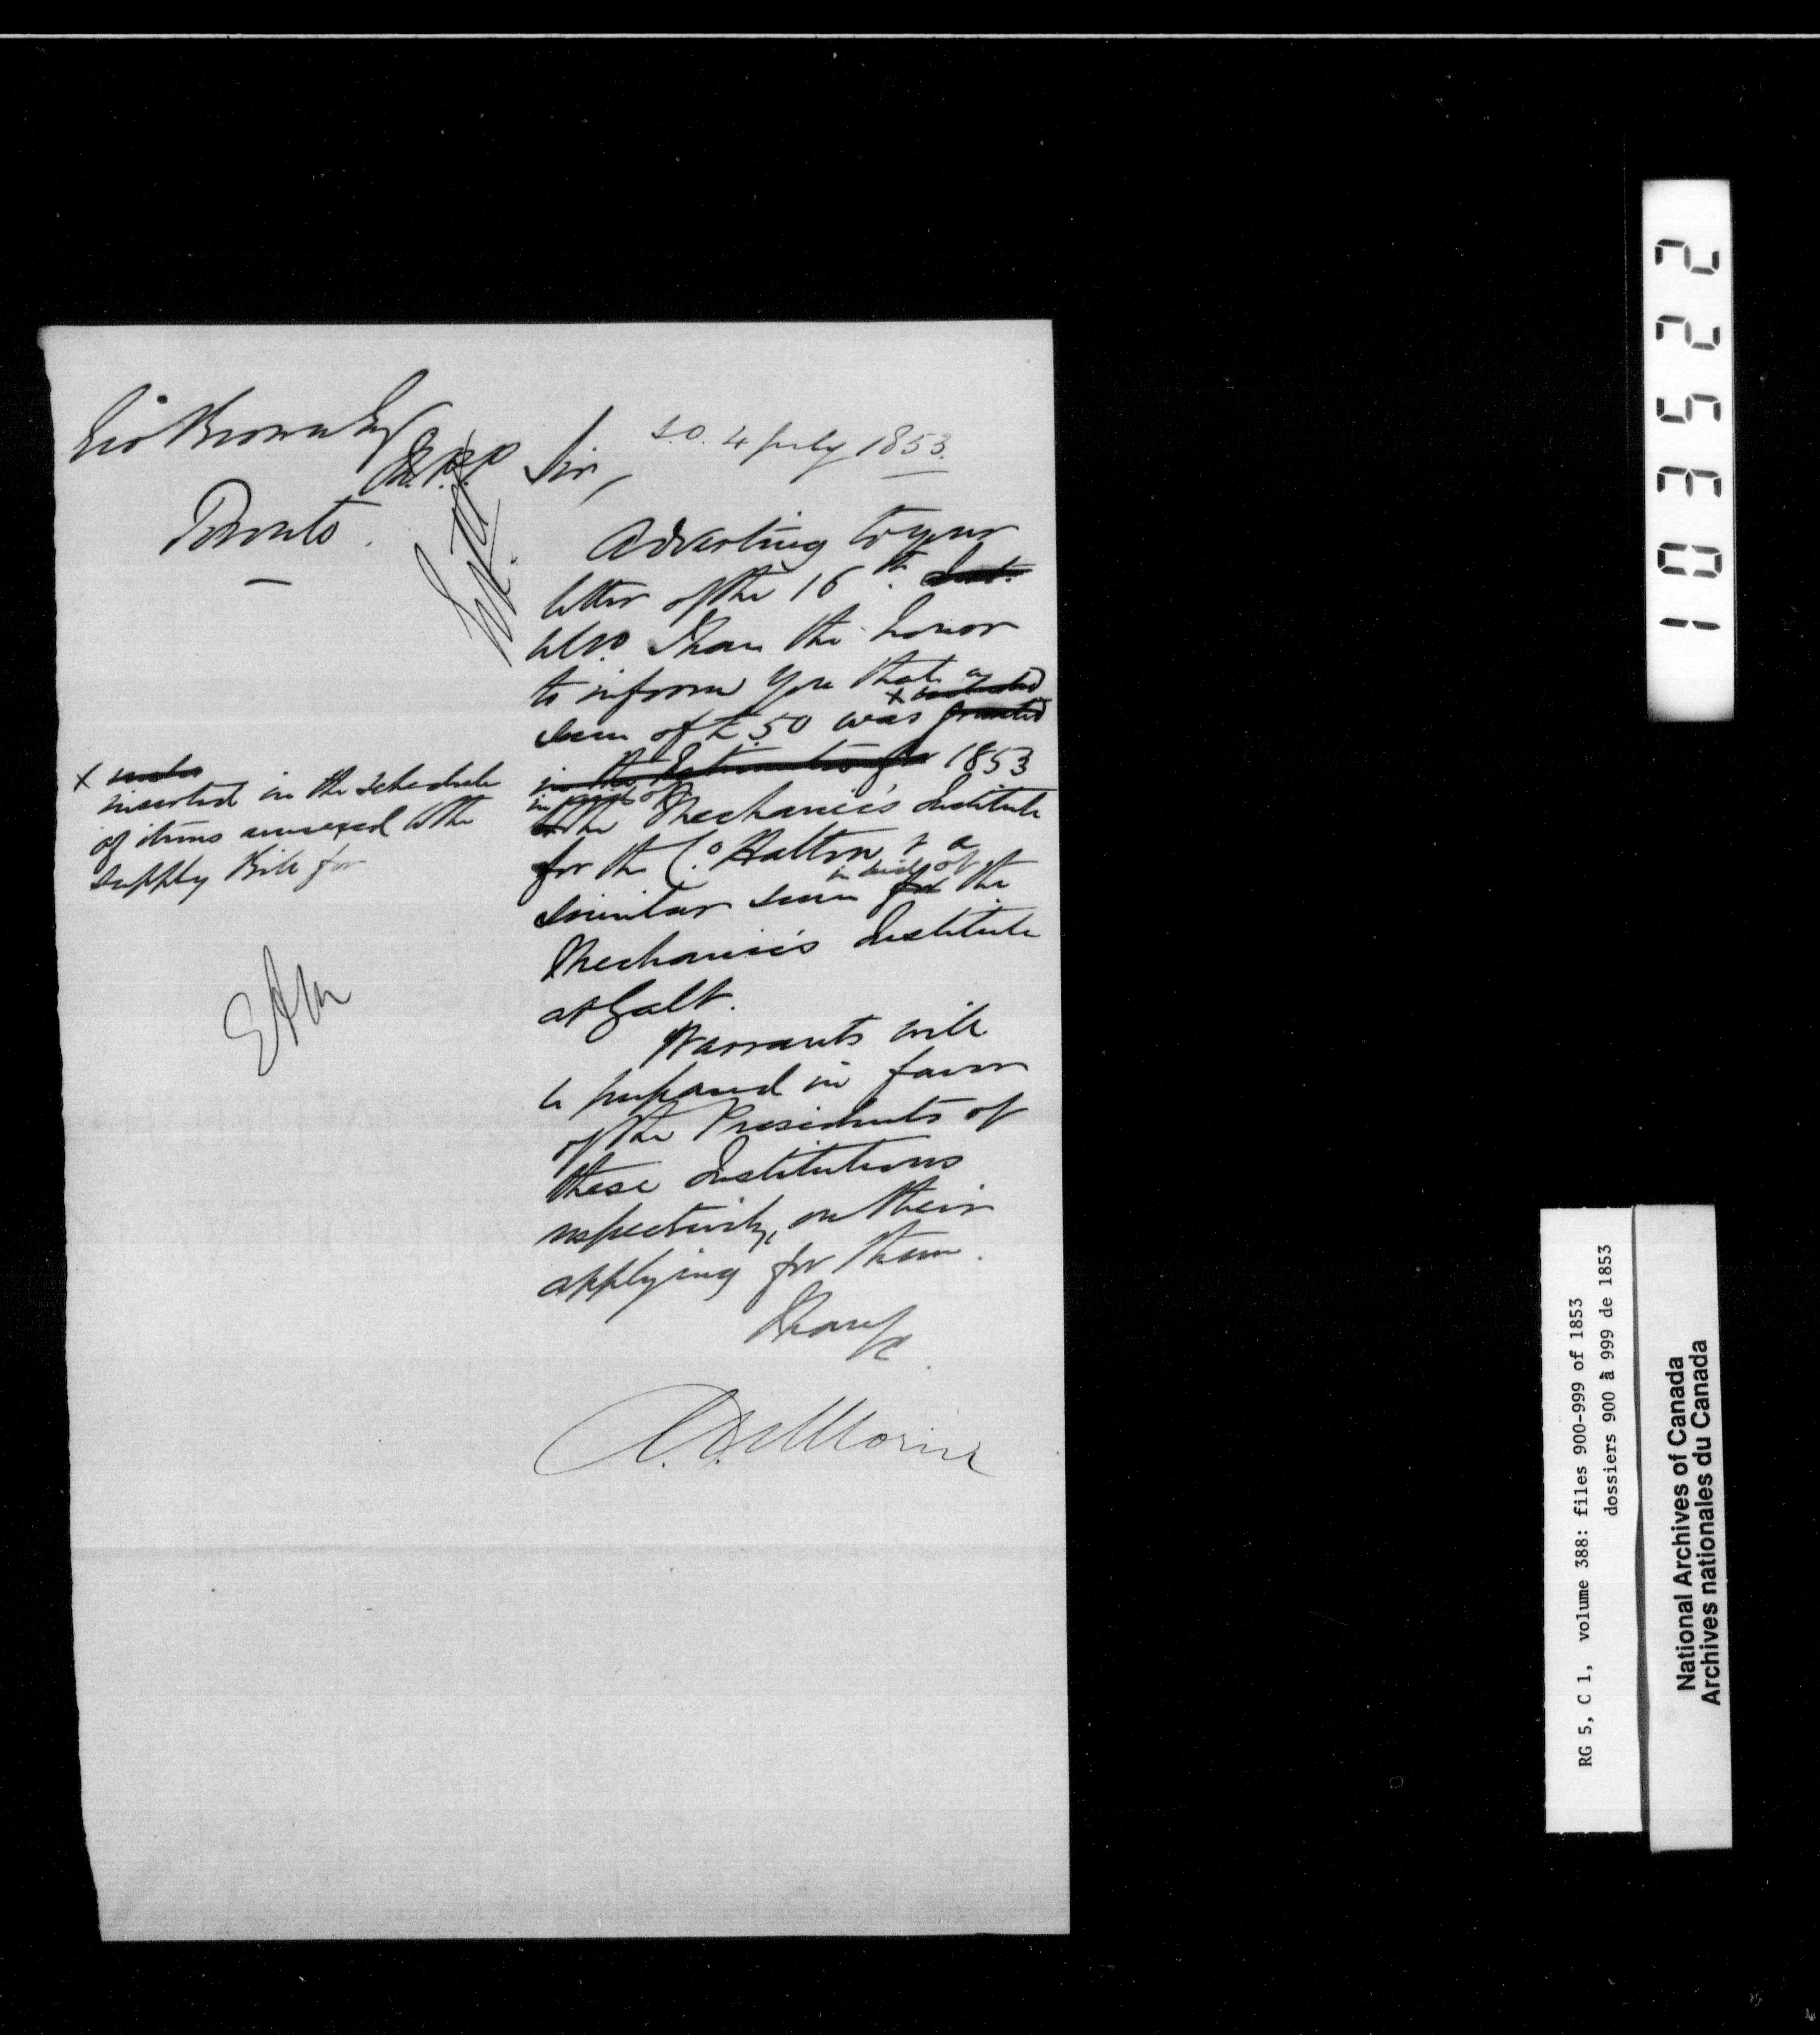 Geo Brown Esq
M.P.P.
Toronto.
S.O. 4 July 1853.
Sir,
Adverting to your
letter of the 16th Inst.
ulto. I have the honor
to inform you that a
x included
sum of £50 was granted
in the Estimates for 1853
in aid of
to the Mechanics Institute
for the Co. Halton & a
in aid of
similar sum for the
Mechanics Institute
at Galt.
Warrants will
be prepared in favor
of the Presidents of
these Institutions
respectively, on their
applying for them.
I have &c
A. N. Morin
x under
inserted in the schedule
of items annexed to the
supply Bill for
EAM
103522
RG 5, C 1, volume 388: files 900-999 of 1853
dossiers 900 à 999 de 1853
National Archives of Canada
Archives nationales du Canada